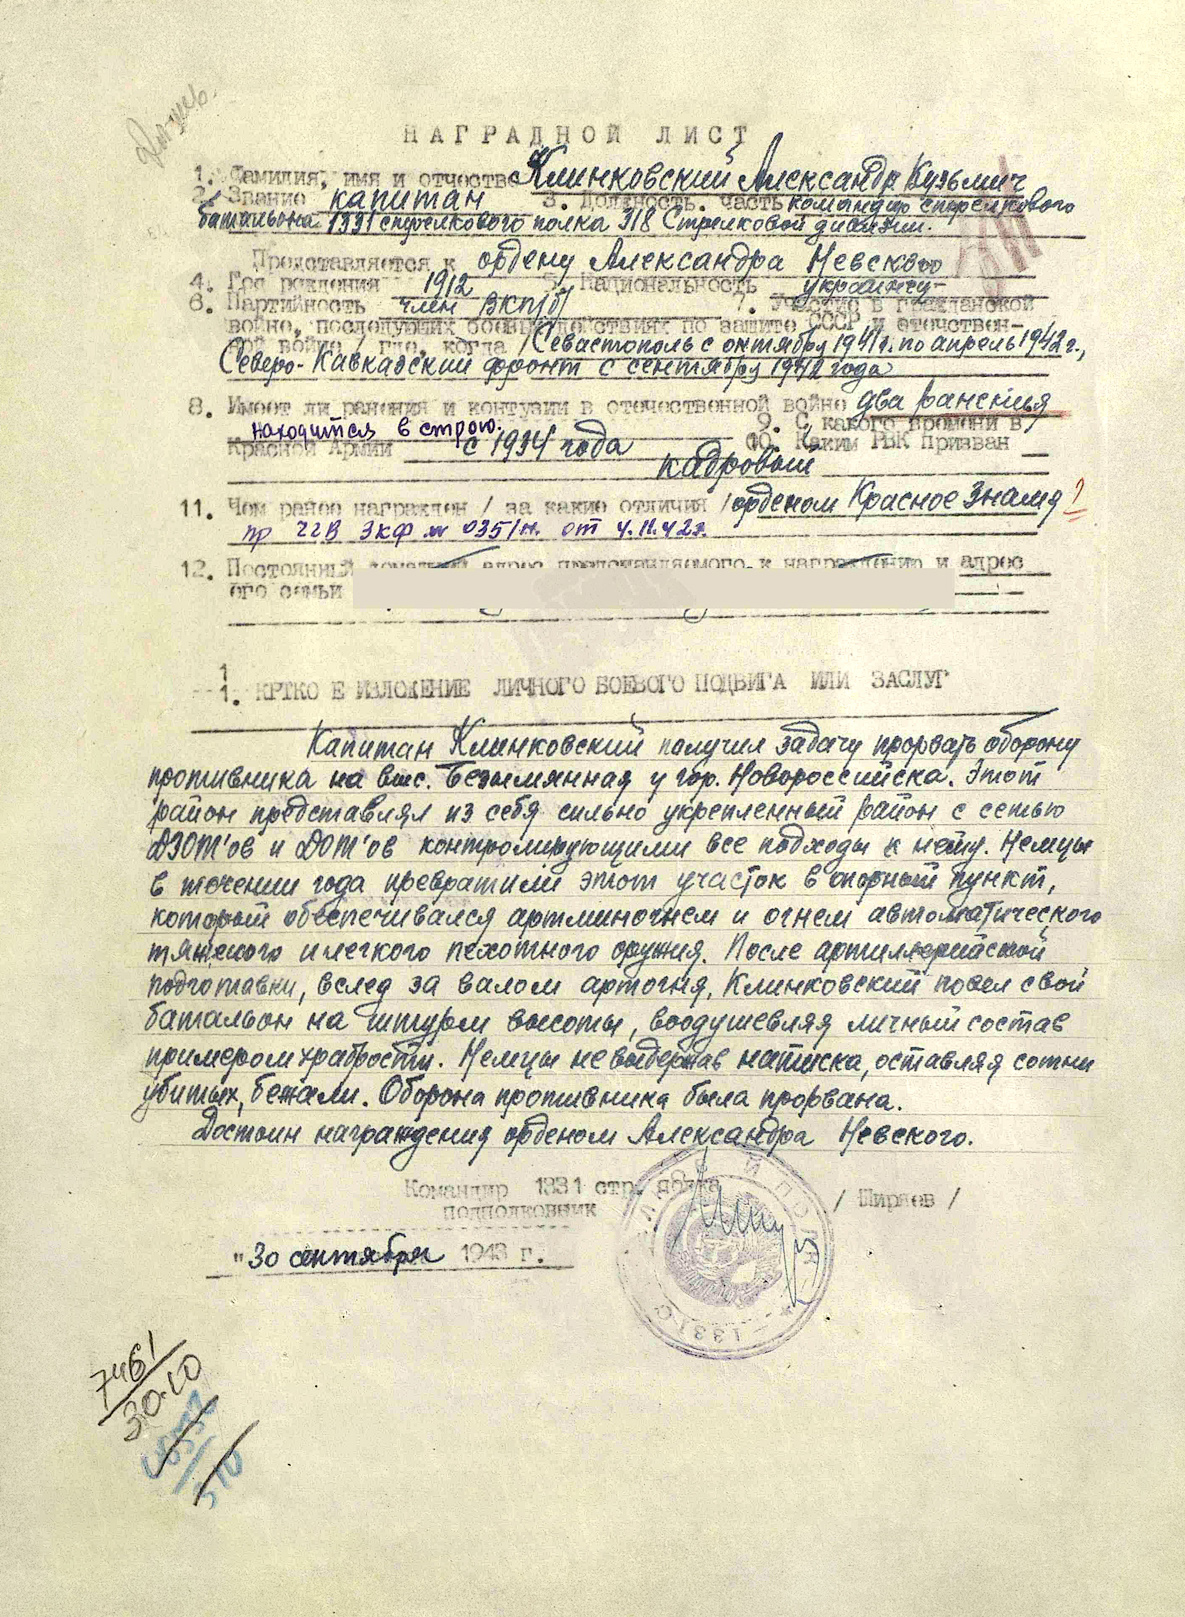 НАГРАДНОЙ ЛИСТ
1. Фамилия, имя и отчество Клинковский Александр Кузьмич
2. Звание капитан 3. Должность, часть командир стрелкового
батальона 1331 стрелкового полка 318 Стрелковой дивизии.
Представляется к ордену Александра Невского
4. Год рождения 1912 5. Национальность украинец
6. Партийность член ВКП/б/ 7. Участие в гражданской
войне, последующих боевых действиях по защите СССР и отечествен-
ной войне / где, когда / Севастополь с октября 1941 г. по апрель 1942 г.,
Северо-Кавказский фронт с сентября 1942 года
8. Имеет ли ранения и контузии в отечественной войне два ранения
находится в строю. 9. С какого времени в
Красной Армии с 1934 года 10. Каким РВК призван
кадровый
11. Чем ранее награжден / за какие отличия / орденом Красное Знамя
пр ЧГВ ЗКФ № 035/н. от 4.11.42г.
12. Постоянный домашний адрес представляемого к награждению и адрес
его семьи
1
1. КРТКО Е ИЗЛОЖЕНИЕ ЛИЧНОГО БОЕВОГО ПОДВИГА ИЛИ ЗАСЛУГ
Капитан Клинковский получил задачу прорвать оборону
противника на выс. Безымянная у гор. Новороссийска. Этот
район представлял из себя сильно укрепленный район с сетью
ДЗОТ'ов и ДОТ'ов контролирующими все подходы к нему. Немцы
в течении года превратили этот участок в опорный пункт,
который обеспечивался артминогнем и огнем автоматического
тяжелого и легкого пехотного оружия. После артиллерийской
подготовки, вслед за валом артогня, Клинковский повел свой
батальон на штурм высоты, воодушевляя личный состав
примером храбрости. Немцы не выдержав натиска, оставляя сотни
убитых, бежали. Оборона противника была прорвана.
Достоин награждения орденом Александра Невского.
Командир 1331 стр. полка
подполковник / Ширяев /
"30 сентября 1943 г.
7461
30.10